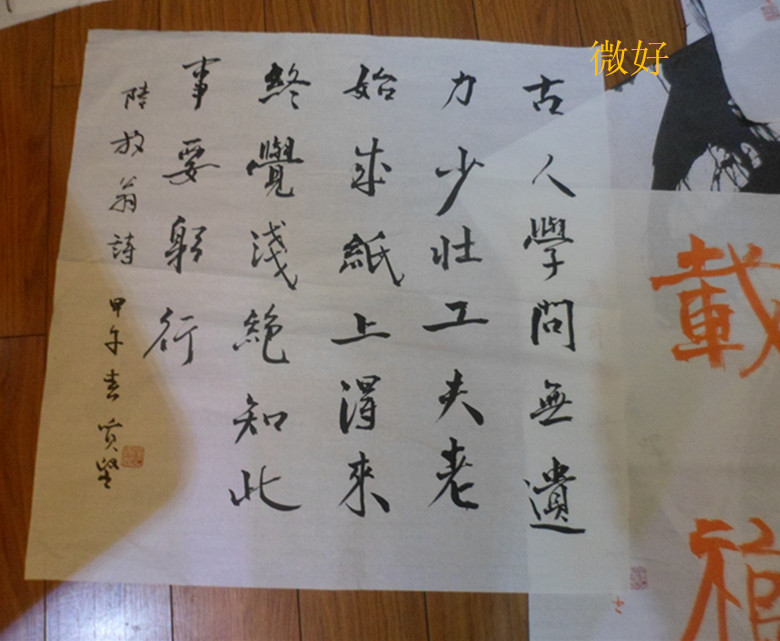 微好
古人學問無遺
力少壯工夫老
始成紙上淂來
終覺淺絕知此
事要躬行
陸放翁詩
甲午春
載
福